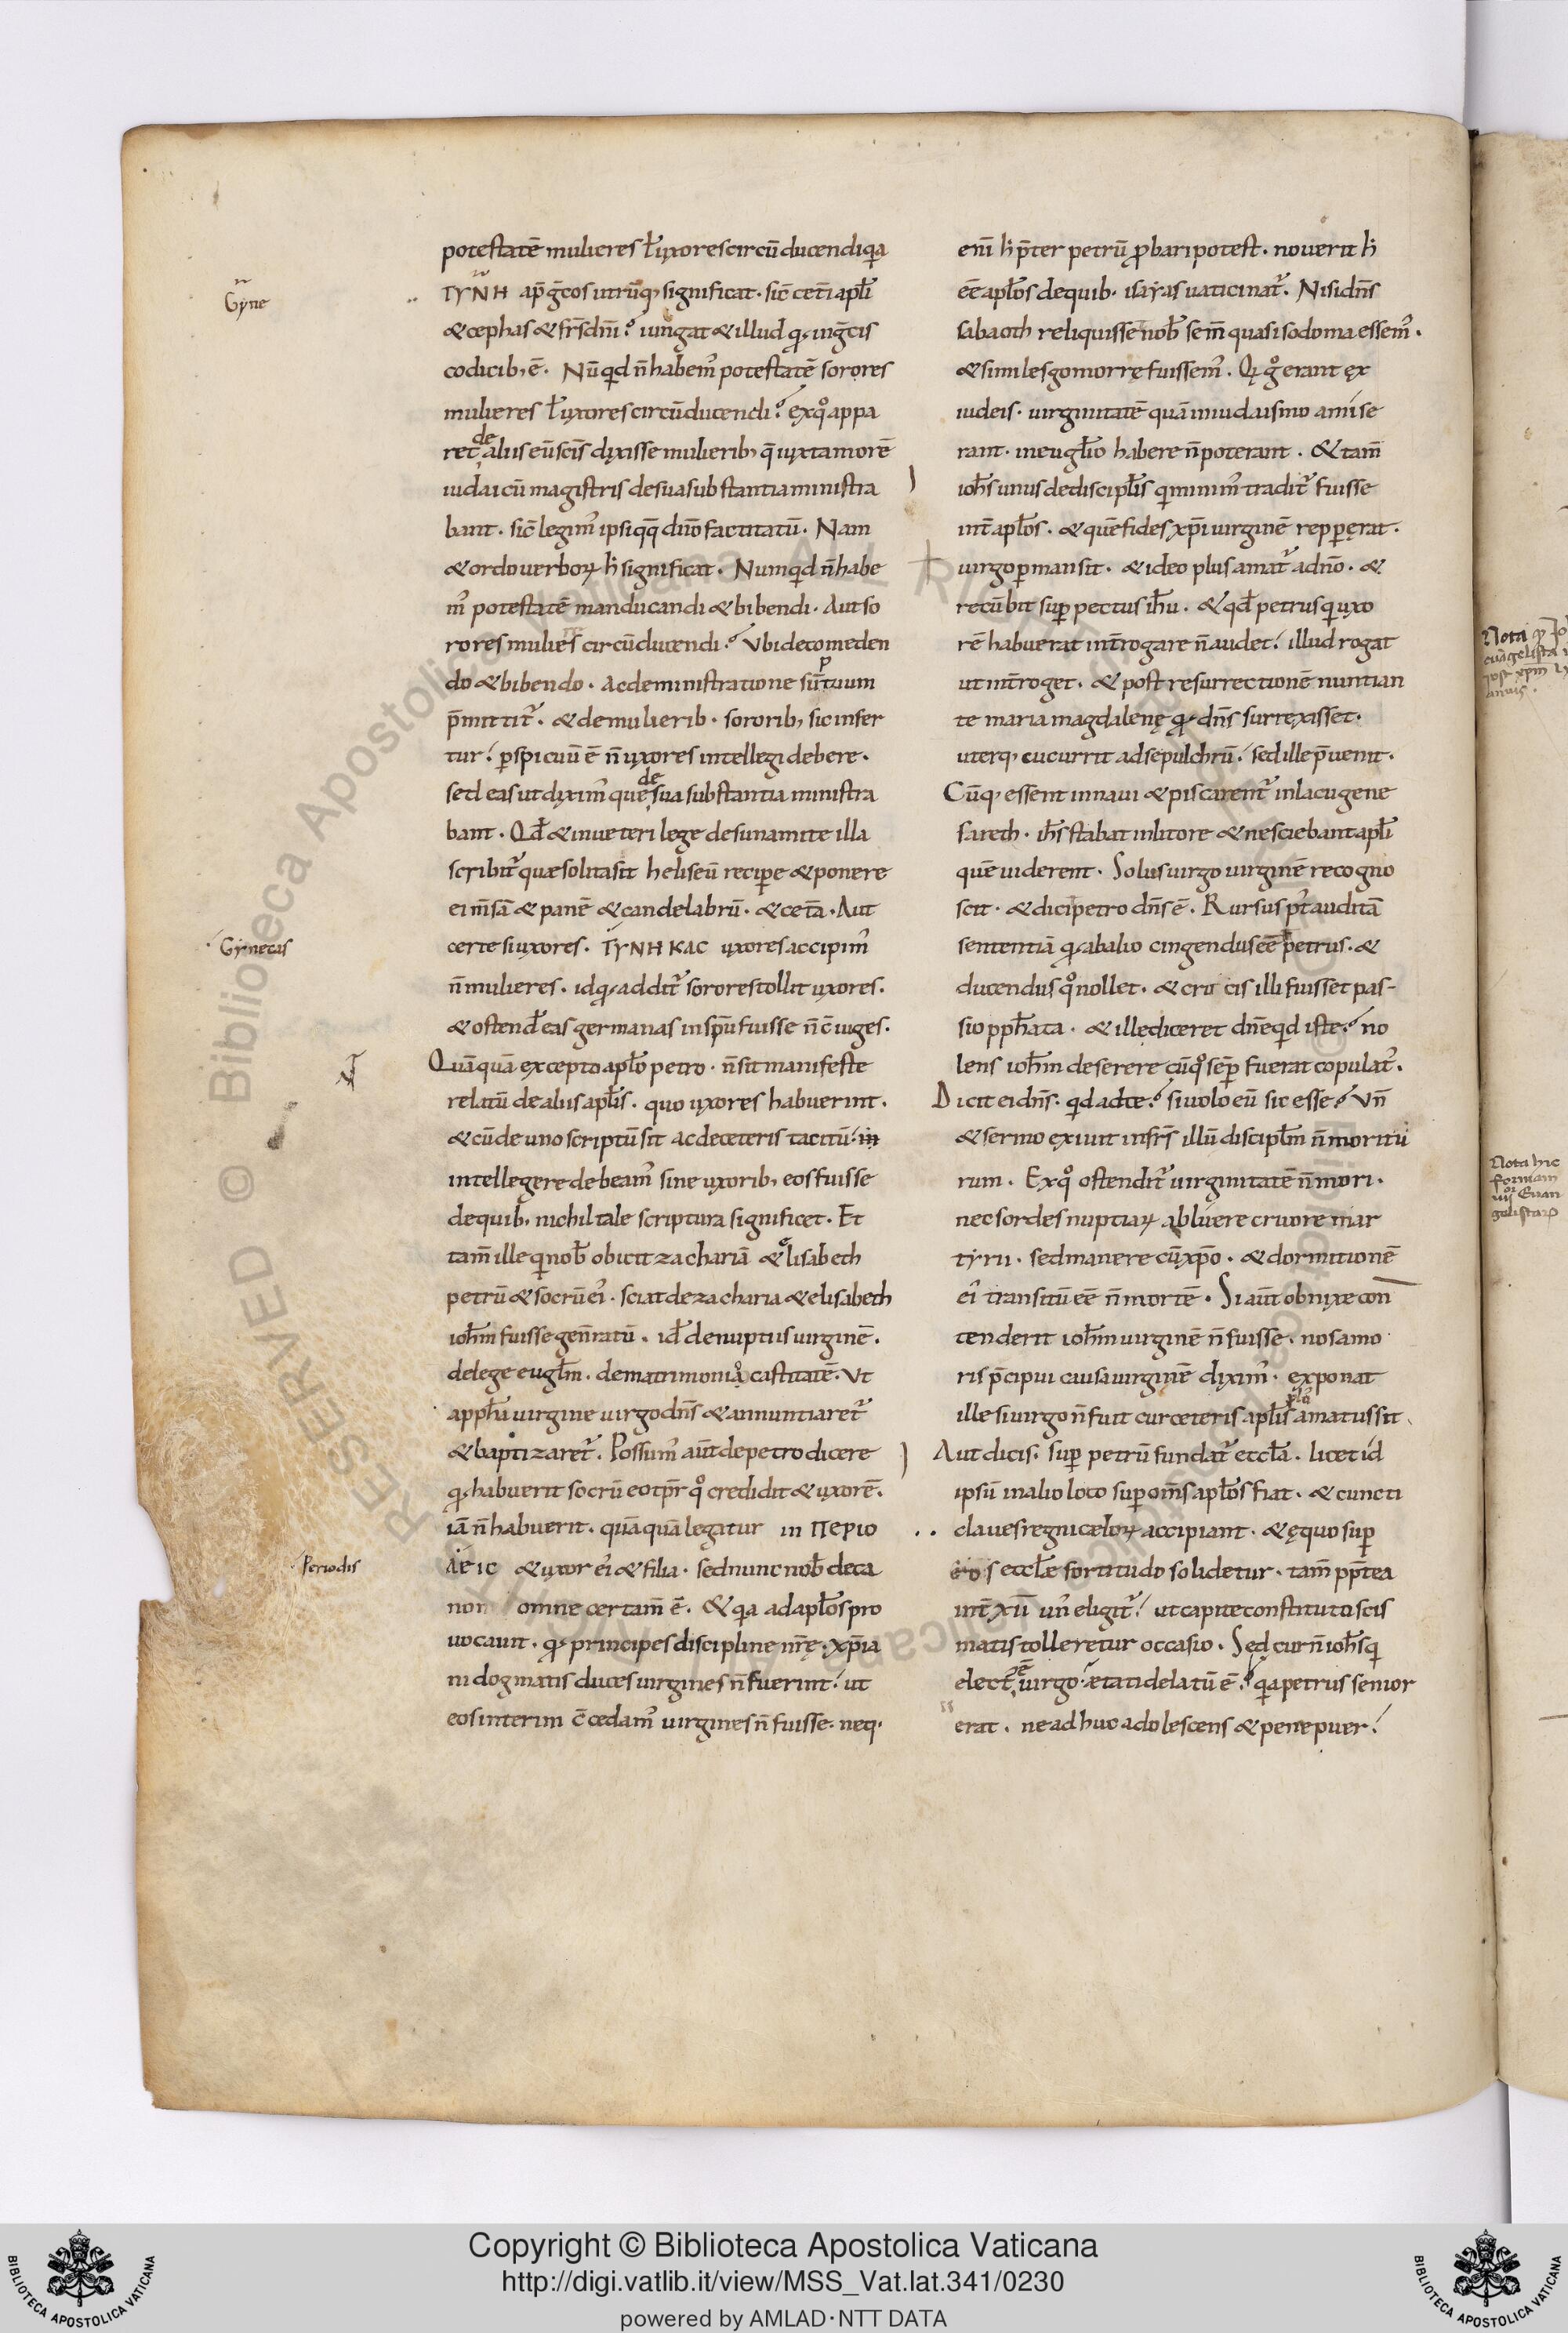 potestatē mulieres ł uxores circūducendi q̄a
ΓΥΝΗ ap̄ ḡcos utrūq; significat. sic̄ cet̄i apłi
& cephas & fr̄s dn̄i? iungat & illud qđ in ḡcis
codicib; ē. Nūqd n̄ habem᾿ potestatē sorores
mulieres ł uxores circūducendi? ex q̊ appa
ret de aliis eū sc̄is dixisse mulierib; q̄ iuxta morē
iudaicū magistris de sua substantia ministra
bant. sic̄ legim᾿ ipsi qq̄ dn̄o factitatū. Nam
& ordo verboꝝ h̄ significat. Numqd n̄ habe
m᾿ potestatē manducandi & bibendi. Aut so
rores mulieres circūducendi? Ubi de comeden
do & bibendo. Ac de ministratione sūptuum
p̄mittit᾿. & de mulierib. sororib; sic infer
tur! pspicuū ē n̄ uxores intellegi debere.
sed eas ut dixim᾿ que de sua substantia ministra
bant. Qđ & in veteri lege de sunamite illa
scribit᾿ quæ solita sit heliseū recipe & ponere
ei m̄sā & panē & candelabrū. & cet̄a. Aut
certe si uxores. ΓΥΝΗΚΑC uxores accipim᾿
n̄ mulieres. id qđ addit᾿ sorores tollit uxores.
& ostendˉ eas germanas in sp̄u fuisse n̄ c̄iuges.
Quāquā excepto apło petro. n̄ sit manifeste
relatū de aliis apłis. quo uxores habuerint.
& cū de uno scriptū sit ac de ceteris tacitū!
intellegere debeam᾿ sine uxorib; eos fuisse
de quib; nichil tale scriptura significet. Et
tam̄ ille q nob̄ obicit zachariā & elisabeth
petrū & socrū ei᾿. sciat de zacharia & elisabeth
ioh̄m fuisse gen̄ratū. id̄ de nuptiis virginē.
de lege eugłm. de matrimonio castitatē. Ut
a ppha virgine virgo dn̄s & annuntiaret᾿
& baptizaret᾿. Possum᾿ aūt de petro dicere
qđ habuerit socrū eo tp̄r q̊ credidit & uxorē.
iā n̄ habuerit. quāquā legatur in ΠΕΡΙΟ
ΔΕΙC & uxor ei᾿ & filia. sed nunc nob̄ de ca
non omne certam̄ ē. & q̄a ad apłos pro
vocavit. qđ principes discipline nr̄ę. xp̄ia
ni dogmatis duces virgines n̄ fuerint! ut
eos interim c̄cedam᾿ virgines n̄ fuisse. neq.
eni h̄ p̄ter petrū pbari potest. noverit h̄
eē apłos de quib. isaỹas vaticinat᾿. Nisi dn̄s
sabaoth reliquisset nob̄ sem̄ quasi sodoma essem᾿.
& similes gomorrę fuissem᾿. Qi ḡ erant ex
iudeis. virginitatē quā in iudaismo amise
rant. in eugłio habere n̄ poterant. & tam̄
ioh̄s unus de discipłis q minim᾿ tradit᾿ fuisse
int̄ apłos. & quē fides xp̄i virginē reppererat.
virgo pmansit. & ideo plus amat᾿ a dn̄o. &
recūbit sup pectus ih̄u. & qđ petrus q uxo
rē habuerat int̄rogare n̄ audet! illud rogat
ut int̄roget. & post resurrectionē nuntian
te maria magdalenę qđ dn̄s surrexisset.
uterq; cucurrit ad sepulchrū! sed ille p̄venit.
Cūq; essent in navi & piscarent᾿ in lacu gene
sareth. ih̄s stabat in litore & nesciebant apłi
quē viderent. Solus virgo virginē recogno
scit. & dicit petro dn̄s ē. Rursus p᾿t auditā
sententiā qđ ab alio cingendus eē petrus. &
ducendus q̊ nollet. & crucis illi fuisset pas-
sio pph̄ata. & ille diceret dn̄e qd iste? no
lens ioh̄m deserere cū q̊ sēp fuerat copulat᾿.
Dicit ei dn̄s. qd ad te? si volo eū sic esse? Un̄
& sermo exivit in fr̄s illū discipłm n̄ moritu
rum. Ex q̊ ostendit᾿ virginitatē n̄ mori.
nec sordes nuptiaꝝ abluere cruore mar
tyrii. sed manere cū xp̄o. & dormitionē
ei᾿ transitū eē n̄ mortē. Si aūt obnixe con
tenderit ioh̄m virginē n̄ fuisse. nos amo
ris p̄cipui causa virginē dixim᾿. exponat
ille si virgo n̄ fuit cur ceteris apłis pl᾿ amatus sit.
Aut dicis. sup petrū fundat᾿ eccła. licet id
ipsū in alio loco sup om̄s apłos fiat. & cuncti
claves regni cæloꝝ accipiant. & ęquo sup
eos eccłe fortitudo solidetur. tam̄ ppt̄ea
int̄ xii un᾿ eligit᾿! ut capite constituto scis
matis tolleretur occasio. Sed cur n̄ ioh̄s q
elect᾿ ē virgo. ætati delatū ē? q̄a petrus senior
erat. ne adhuc adolescens & pene puer!
Gyne
Gynecas
Periodis
Nota hic
Copyright © Biblioteca Apostolica Vaticana
http://digi.vatlib.it/view/MSS_Vat.lat.341/0230
powered by AMLAD·NTT DATA